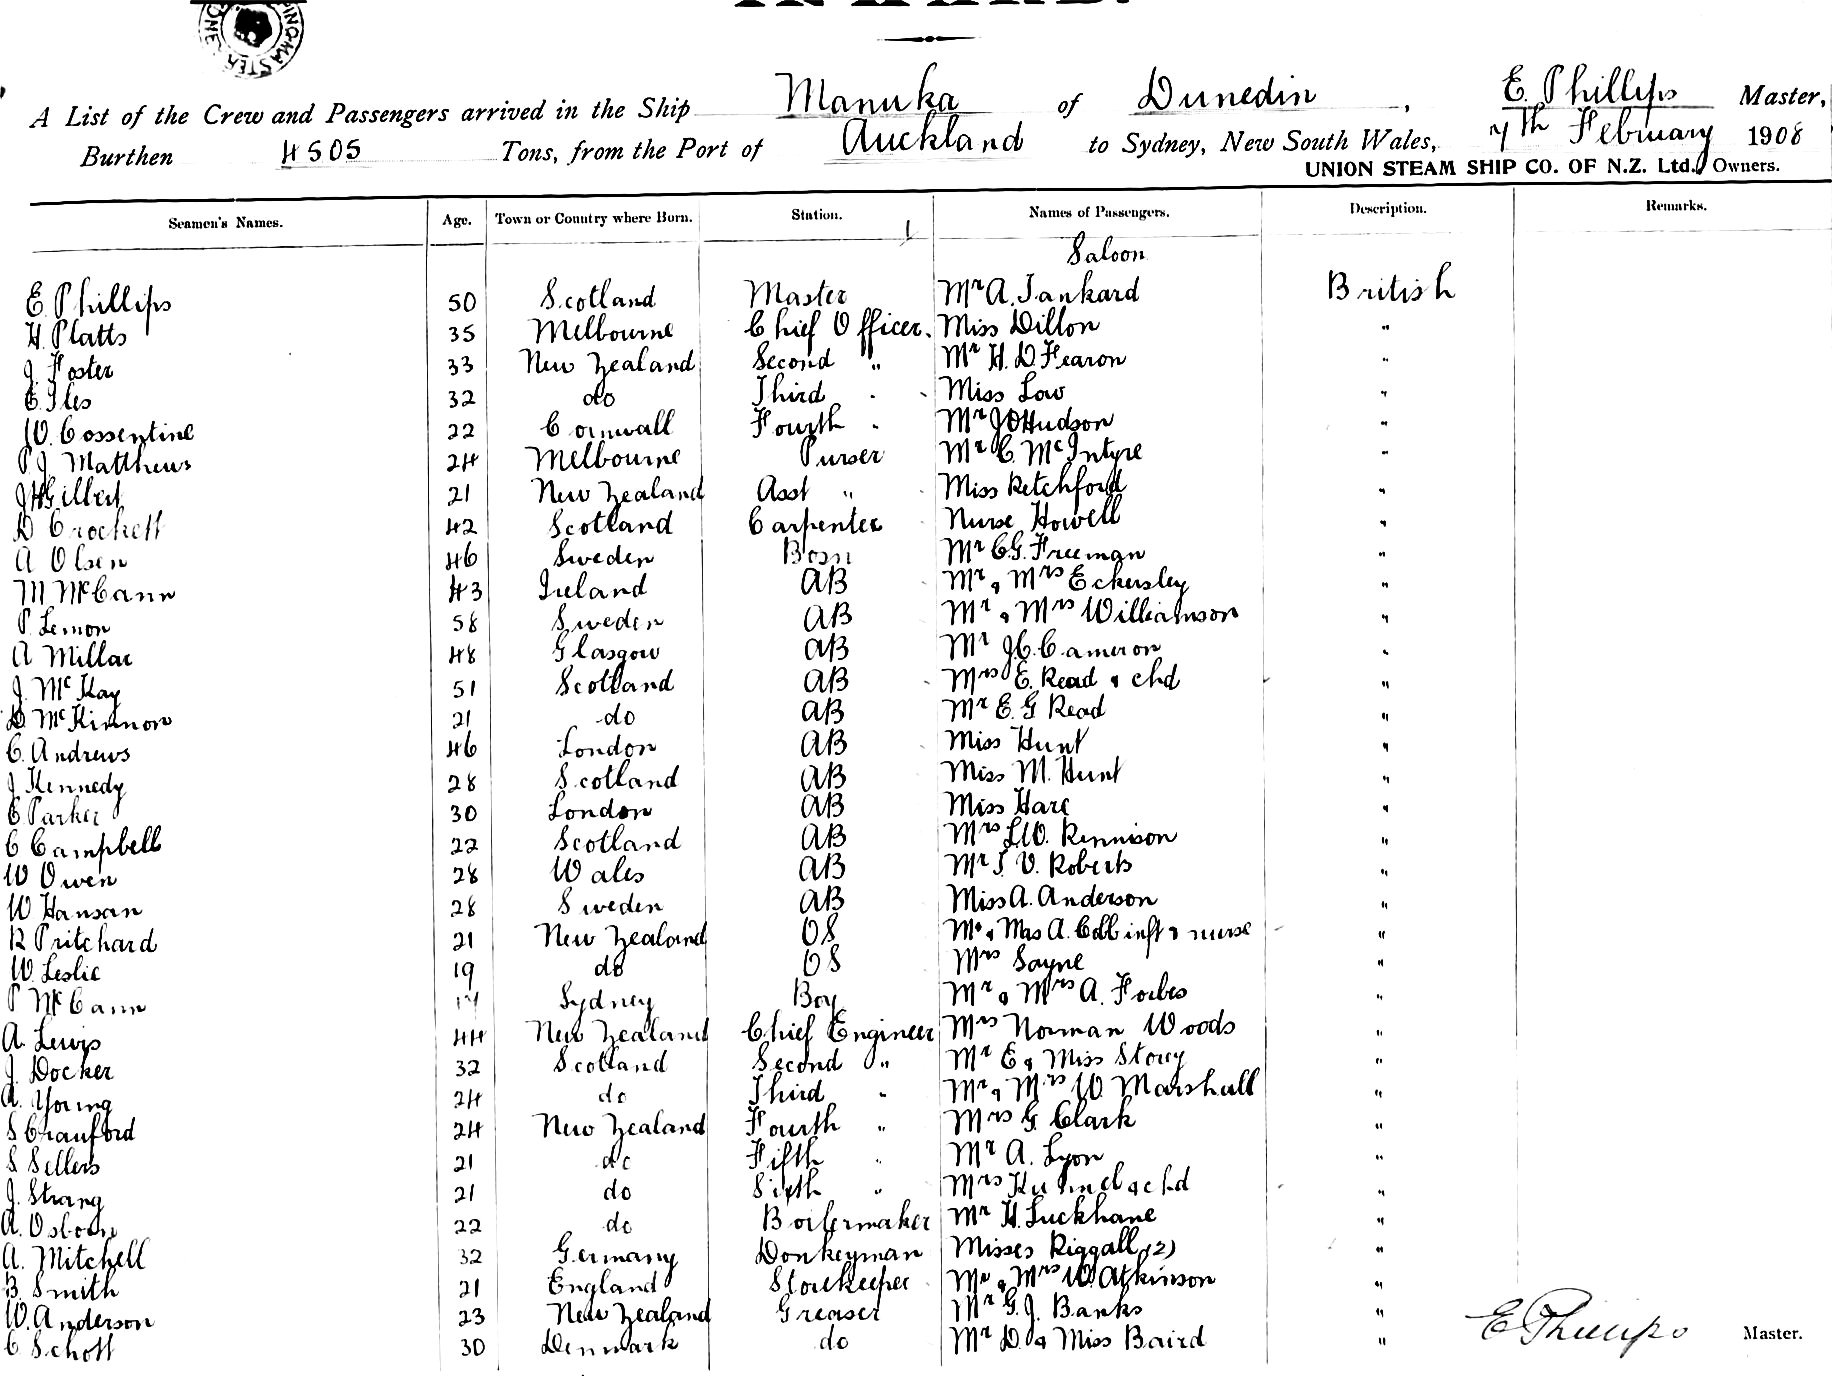 A List of the Crew and Passengers arrived in the Ship Manuka of Dunedin, E. Phillips Master,
Burthen 4505 Tons, from the Port of Auckland to Sydney, New South Wales, 7th February 1908
UNION STEAM SHIP CO. OF N.Z. Ltd., Owners.
Seamen's Names. Age. Town or Country where Born. Station. Names of Passengers. Description. Remarks.
Saloon
E. Phillips 50 Scotland Master Mr A. Tankard British
H. Platts 35 Melbourne Chief Officer. Miss Dillon "
J. Foster 33 New Zealand Second " Mr H. D Fearon "
E. Iles 32 do Third " Miss Low "
W. Cossentine 22 Cornwall Fourth " Mr J O Hudson "
P. J. Matthews 24 Melbourne Purser Mr C. McIntyre "
J H Gilbert 21 New Zealand Asst " Miss Retchford "
D Crockett 42 Scotland Carpenter Nurse Howell "
A Olsen 46 Sweden Bosn Mr C. G. Freeman "
M McCann 43 Ireland AB Mr & Mrs Eckersley "
P. Lemon 58 Sweden AB Mr & Mrs Williamson "
A Millar 48 Glasgow AB Mr J. C. Cameron "
J. McKay 51 Scotland AB Mrs E. Read & chd "
D McKinnon 21 do AB Mr E. G Read "
C. Andrews 46 London AB Miss Hunt "
J Kennedy 28 Scotland AB Miss M. Hunt "
E Parker 30 London AB Miss Hare "
C Campbell 22 Scotland AB Mrs L. W. Rennison "
W Owen 28 Wales AB Mr V. Roberts "
W Hansan 28 Sweden AB Miss A. Anderson "
R Pritchard 21 New Zealand OS Mr & Mrs A. Cobb inft & nurse "
W. Leslie 19 do OS Mrs Sayne "
P McCann 17 Sydney Boy Mr & Mrs A. Forbes "
A. Lewis 44 New Zealand Chief Engineer Mrs Norman Woods "
J. Docker 32 Scotland Second " Mr E & Miss Storey "
A. Young 24 do Third " Mr & Mrs W. Marshall "
S Crauford 24 New Zealand Fourth " Mrs G Clark "
S Sellers 21 do Fifth " Mr A. Lyon "
J. Strang 21 do Sixth " Mrs & chd "
A. Osborn 22 do Boilermaker Mr H. Luckhane "
A. Mitchell 32 Germany Donkeyman Misses Riggall (2) "
B. Smith 21 England Storekeeper Mr & Mrs W. Atkinson "
W. Anderson 23 New Zealand Greaser Mr G. J. Banks "
C Schott 30 Denmark do Mr D. & Miss Baird "
E Phillips Master.